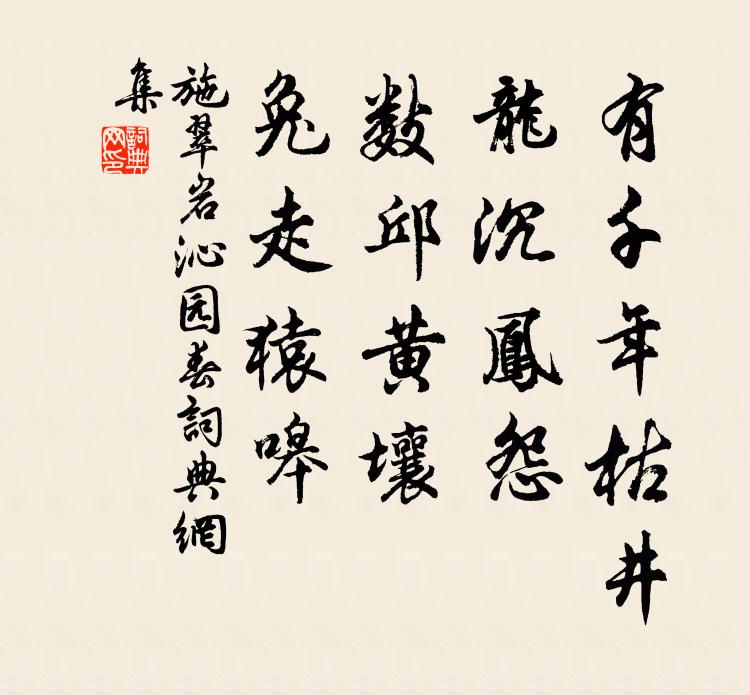 有千年枯井
龍沉鳳怨
數邱黃壤
兔走猿嗥
施翠岩沁园春詞典網
集
詞典
网印